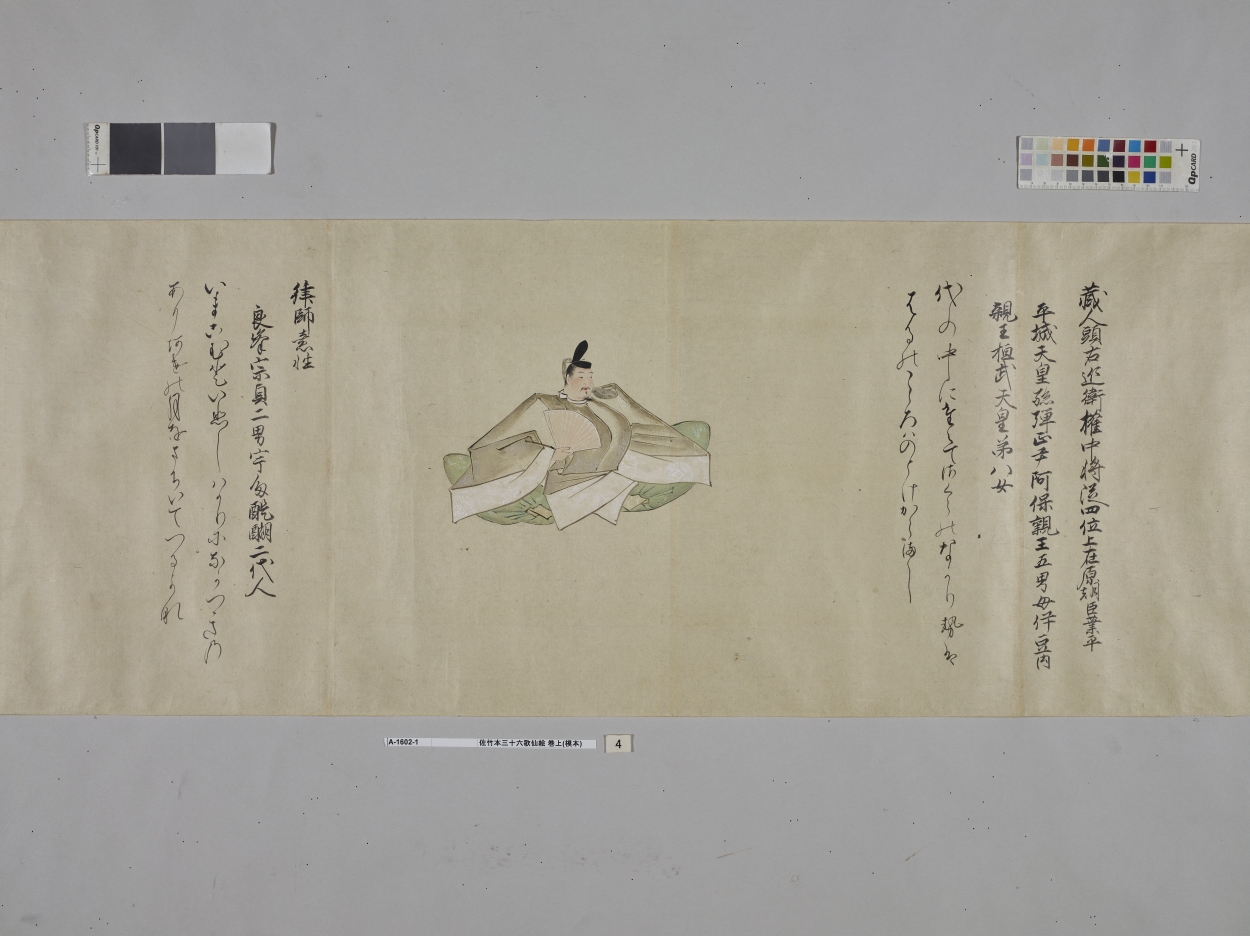 蔵人頭右近衛権中将従四位上在原朝臣業平
平城天皇孫弾正尹阿保親王五男母伊豆内
親王桓武天皇第八女
代の中にたえてさくらのなかり勢は
はるのこゝろハのとけからまし
律師素性
良峯宗貞二男宇多醍醐二代人
いまこむといひしハかりになかつきの
ありあけの月をまちいてつるかな
A-1602-1 佐竹本三十六歌仙絵 巻上(模本)
4
QPCARD
QPCARD